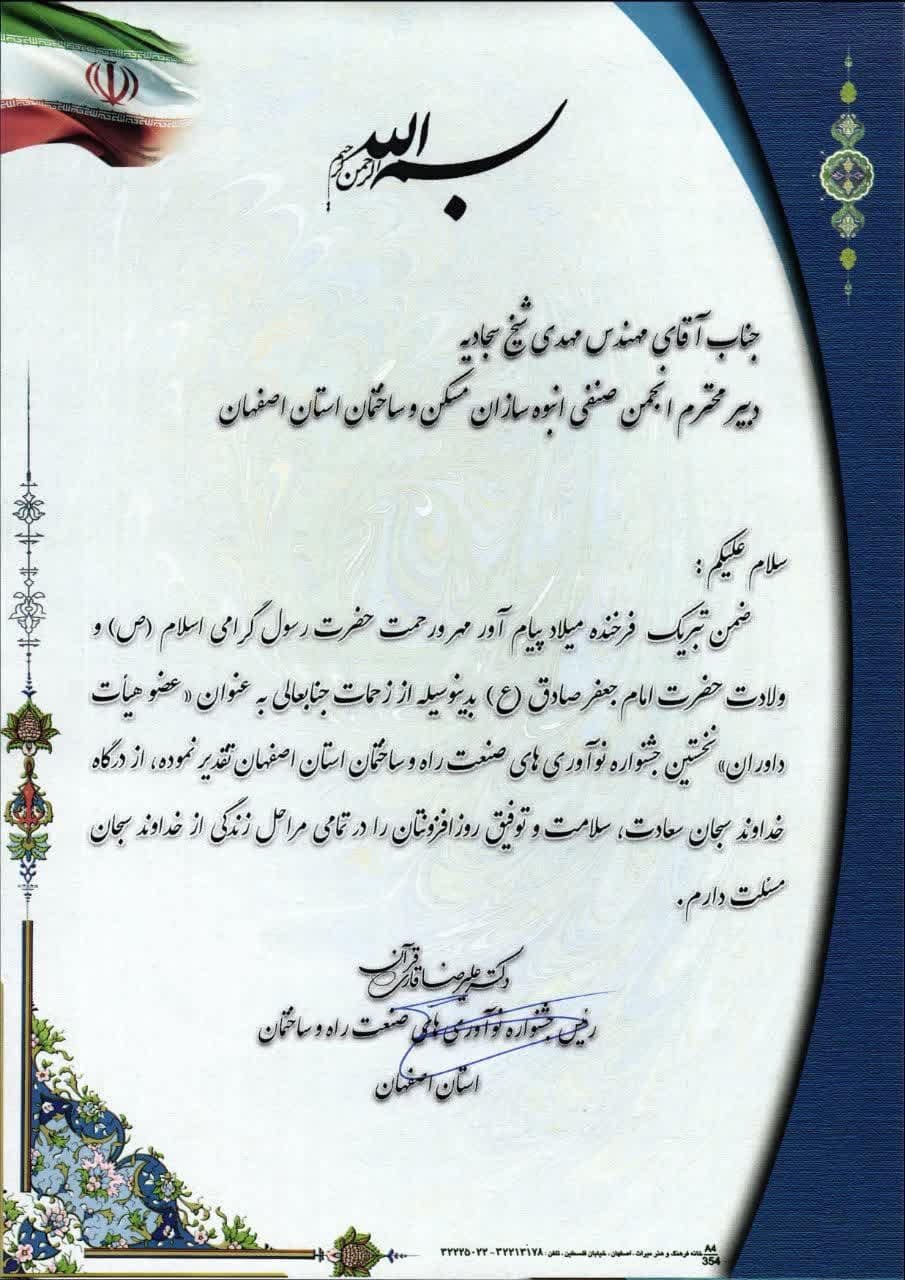 بسم الله الرحمن الرحیم
جناب آقای مهندس مهدی شیخ سجادیه
دبیر محترم انجمن صنفی انبوه سازان مسکن و ساختمان استان اصفهان
سلام علیکم :
ضمن تبریک فرخنده میلاد پیام آور مهر و رحمت حضرت رسول گرامی اسلام (ص) و
ولادت حضرت امام جعفر صادق (ع) بدینوسیله از زحمات جنابعالی به عنوان «عضو هیأت
داوران» نخستین جشنواره نوآوری های صنعت راه و ساختمان استان اصفهان تقدیر نموده، از درگاه
خداوند سبحان سعادت، سلامت و توفیق روزافزونتان را در تمامی مراحل زندگی از خداوند سبحان
مسئلت دارم.
دکتر علیرضا قاری قرآن
رئیس جشنواره نوآوری های صنعت راه و ساختمان
استان اصفهان
خانه فرهنگ و هنر میراث - اصفهان ، خیابان فلسطین ، تلفن : ۳۲۲۱۳۱۷۸ - ۳۲۲۲۵۰۲۲
A4
354